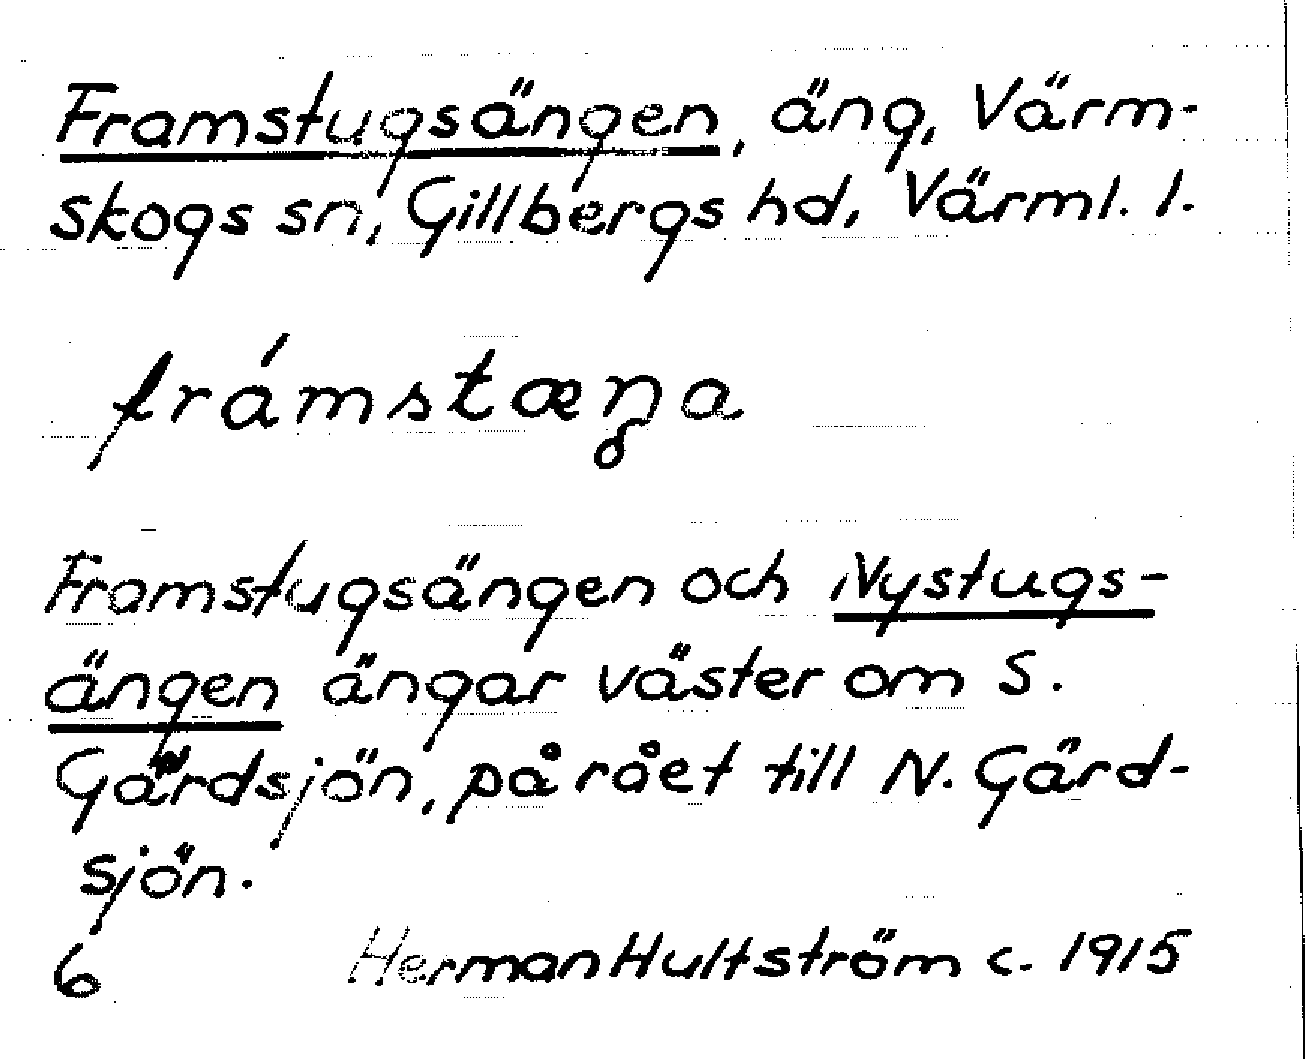 Framstugsängen, äng, Värm-
skogs sn, Gillbergs hd, Värml. l.
frámstæŋa
Framstugsängen och Nystugs-
ängen ängar väster om S.
Gärdsjön, på rået till N. Gärd-
sjön.
6 Herman Hultström c. 1915